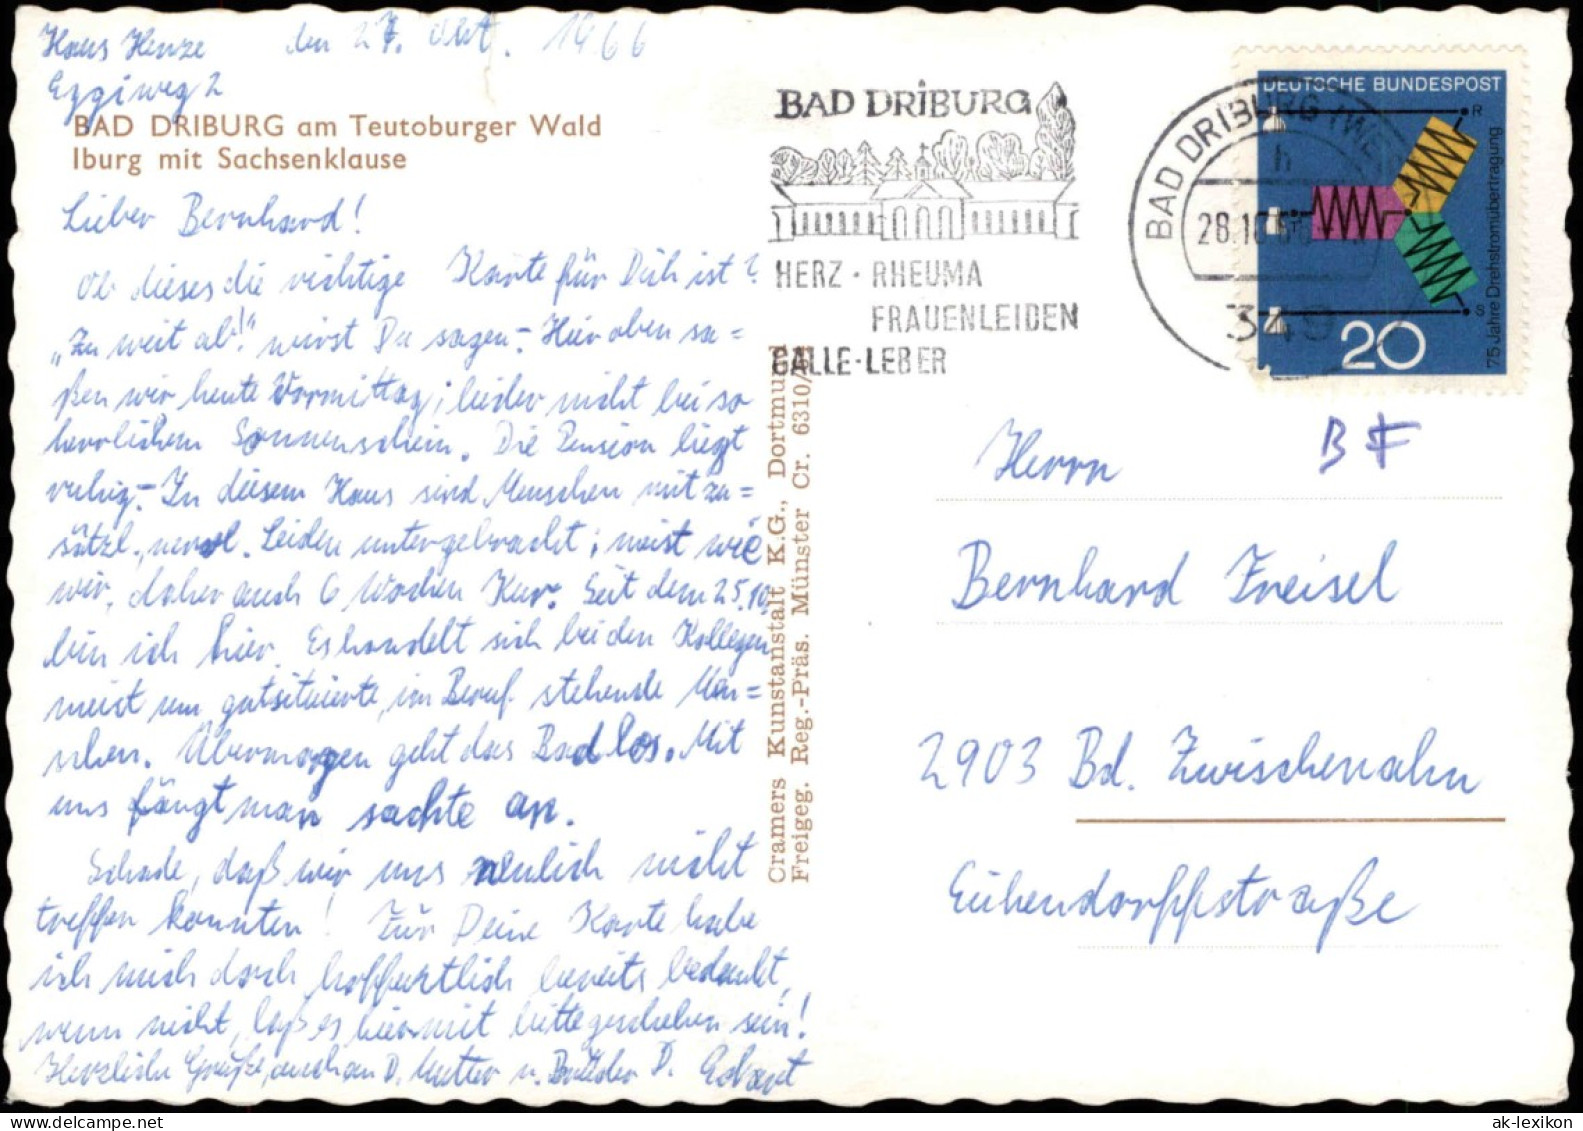 Haus Henze den 27. Okt. 1966
Eggeweg 2
BAD DRIBURG am Teutoburger Wald
Iburg mit Sachsenklause
Lieber Bernhard!
Ob dieses die richtige Karte für Dich ist?
„Zu weit ab!“ wirst Du sagen – Hier oben sa=
ßen wir heute Vormittag; leider nicht bei so
herrlichem Sonnenschein. Die Pension liegt
ruhig – In diesem Haus sind Menschen mit zu=
sätzl., nervl. Leiden untergebracht; meist wie
wir, daher auch 6 Wochen Kur. Seit dem 25.10.
bin ich hier. Es handelt sich bei den Kollegen
meist um gutsituierte, im Beruf stehende Men=
schen. Übermorgen geht das Bad los. Mit
uns fängt man sachte an.
Schade, daß wir uns neulich nicht
treffen konnten! Für Deine Karte habe
ich mich doch hoffentlich bereits bedankt,
wenn nicht, laß es hiermit bitte geschehen sein!
Herzliche Grüße, auch an D. Mutter u. Brüder D. Eckart
Cramers Kunstanstalt K.G., Dortmund
Freigeg. Reg.-Präs. Münster Cr. 6310/
BAD DRIBURG
HERZ · RHEUMA
FRAUENLEIDEN
GALLE-LEBER
BAD DRIBURG (WE
h
28.10.66
349
DEUTSCHE BUNDESPOST
R
T
S
75 Jahre Drehstromübertragung
20
BF
Herrn
Bernhard Freisel
2903 Bd. Zwischenahn
Eichendorffstraße
ak-lexikon.com